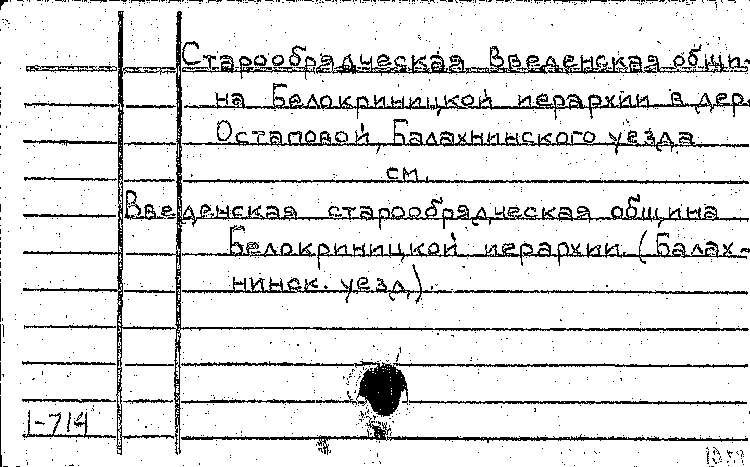 Старообрядческая Введенская общи-
на Белокриницкой иерархии в дер.
Остаповой, Балахнинского уезда
см.
Введенская старообрядческая община
Белокриницкой иерархии. (Балах-
нинск. уезд).
1-714